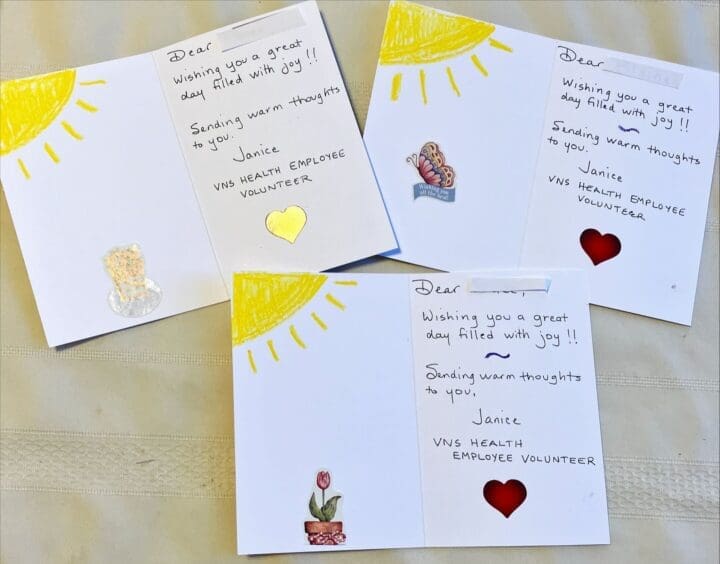 Dear
Wishing you a great
day filled with joy!!
Sending warm thoughts
to you.
Janice
VNS HEALTH EMPLOYEE
VOLUNTEER
Dear
Wishing you a great
day filled with joy!!
~
Sending warm thoughts
to you.
Janice
VNS HEALTH EMPLOYEE
VOLUNTEER
Wishing you
all the best!
Dear
Wishing you a great
day filled with joy!!
~
Sending warm thoughts
to you,
Janice
VNS HEALTH
EMPLOYEE VOLUNTEER